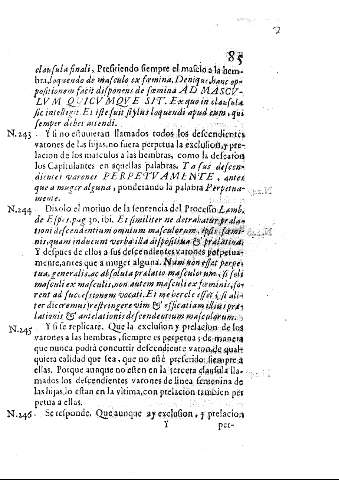 85
clausula finali, Prefiriendo siempre el masclo a la hem-
bra, loquendo de masculo ex fœmina. Denique, hanc op-
positionem facit disponens de fœmina AD MASCV-
LVM QVICVMQVE SIT. Ex quo in clausula
sic intelligit. Et iste fuit stylus loquendi apud eum, qui
semper debet attendi.
N.243 Y si no estuuieran llamados todos los descendientes
varones de las hijas, no fuera perpetua la exclusion, y pre-
lacion de los masculos a las hembras, como la desearon
los Capitulantes en aquellas palabras. Ta sus descen-
dientes varones PERPETVAMENTE, antes
que a muger alguna, ponderando la palabra Perpetua-
mente.
N.244 Dixolo el motiuo de la sentencia del Processo Lamb.
de Espes, pag. 10. ibi. Et similiter ne detrahatur præla-
tioni descendentium omnium masculorum, ipsis fœmi-
nis, quam inducunt verba illa dispositiua & prælatiua.
Y despues de ellos a sus descendientes varones perpetua-
mente, antes que a muger alguna. Num non esset perpe-
tua, generalis, ac absoluta prælatio masculorum, si soli
masculi ex masculis, non autem masculi ex fœminis, fo-
rent ad successionem vocati. Et me hercle esset, si ali-
ter diceremus, restringere vim & efficatiam illius præ-
lationis & antelationis descendentium masculorum.
N.245 Y si se replicare. Que la exclusion y prelacion de los
varones a las hembras, siempre es perpetua, de manera
que nunca podrà concurrir descendiente varon, de qual-
quiera calidad que sea, que no estè preferido siempre a
ellas. Porque aunque no esten en la tercera clausula lla-
mados los descendientes varones de linea femenina de
las hijas, lo estan en la vltima, con prelacion tambien per
petua a ellas.
N.246 Se responde. Que aunque ay exclusion, y prelacion
Y per-